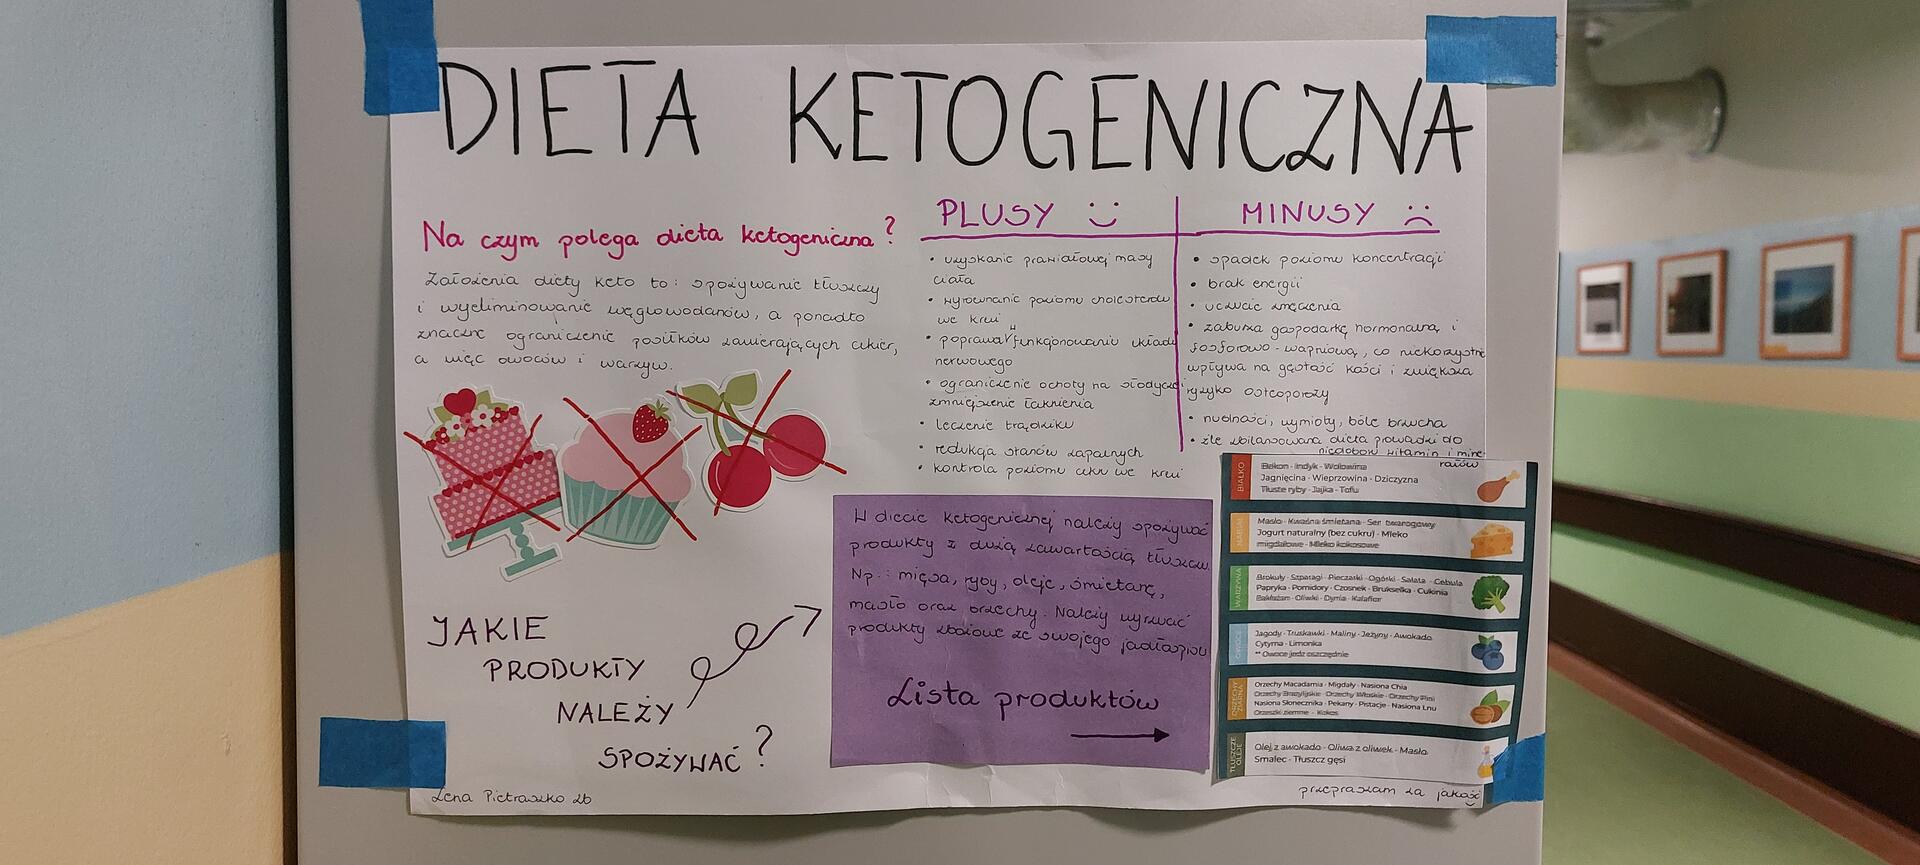 DIETA KETOGENICZNA
Na czym polega dieta ketogeniczna?
Założenia diety keto to: spożywanie tłuszczy
i wyeliminowanie węglowodanów, a ponadto
znaczne ograniczenie posiłków zawierających cukier,
a więc owoców i warzyw.
PLUSY
• uzyskanie prawidłowej masy
ciała
• wyrównanie poziomu cholesterolu
we krwi
• poprawa w funkcjonowaniu układu
nerwowego
• ograniczenie ochoty na słodycze
zmniejszenie łaknienia
• leczenie trądziku
• redukcja stanów zapalnych
• kontrola poziomu cukru we krwi
MINUSY
• spadek poziomu koncentracji
• brak energii
• uczucie zmęczenia
• zaburza gospodarkę hormonalną i
fosforowo-wapniową, co niekorzystnie
wpływa na gęstość kości i zwiększa
ryzyko osteoporozy
• nudności, wymioty, bóle brzucha
• źle zbilansowana dieta prowadzi do
niedoborów witamin i mine
rałów
JAKIE
PRODUKTY
NALEŻY
SPOŻYWAĆ?
W diecie ketogenicznej należy spożywać
produkty z dużą zawartością tłuszczu.
Np.: mięsa, ryby, oleje, śmietanę,
masło oraz orzechy. Należy wyrzucić
produkty zbożowe ze swojego jadłospisu
Lista produktów
BIAŁKO
Bekon · Indyk · Wołowina
Jagnięcina · Wieprzowina · Dziczyzna
Tłuste ryby · Jajka · Tofu
NABIAŁ
Masło · Kwaśna śmietana · Ser twarogowy
Jogurt naturalny (bez cukru) · Mleko
migdałowe · Mleko kokosowe
WARZYWA
Brokuły · Szparagi · Pieczarki · Ogórki · Sałata · Cebula
Papryka · Pomidory · Czosnek · Brukselka · Cukinia
Bakłażan · Oliwki · Dynia · Kalafior
OWOCE
Jagody · Truskawki · Maliny · Jeżyny · Awokado
Cytryna · Limonka
** Owoce jedz oszczędnie
ORZECHY
ZIARNA
Orzechy Macadamia · Migdały · Nasiona Chia
Orzechy Brazylijskie · Orzechy Włoskie · Orzechy Pini
Nasiona Słonecznika · Pekany · Pistacje · Nasiona Lnu
Orzeszki ziemne · Kokos
TŁUSZCZE
OLEJE
Olej z awokado · Oliwa z oliwek · Masło
Smalec · Tłuszcz gęsi
Lena Pietraszko 2b
przepraszam za jakość